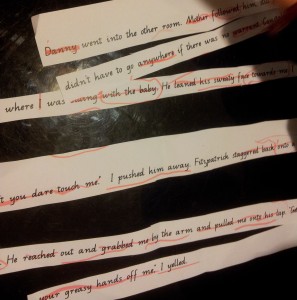 Danny went into the other room. Mother followed him,
didn't have to go anywhere if there was no warrant.
where I was with the baby. He leaned his sweaty face towards me
you dare touch me." I pushed him away. Fitzpatrick staggered back onto
He reached out and grabbed me by the arm and pulled me onto his lap.
your greasy hands off me." I yelled.